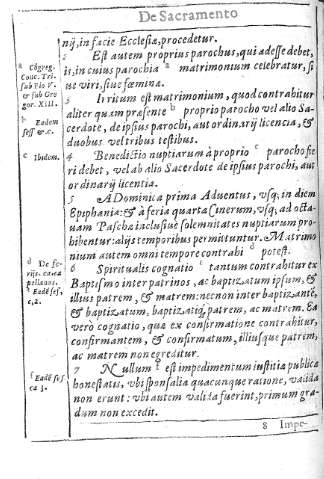 De Sacramento
nij, in facie Ecclesiæ, procedetur.
2 Est autem proprius parochus, qui adesse debet,
is, in cuius parochia a matrimonium celebratur, si
ue viri, siue fœmina.
3 Irritum est matrimonium, quod contrahitur
aliter quam præsente b proprio parocho vel alio Sa-
cerdote, de ipsius parochi, aut ordinarij licencia, &
duobus vel tribus testibus.
4 Benedictio nuptiarum à proprio c parocho fie
ri debet, vel ab alio Sacerdote de ipsius parochi, aut
ordinarij licentia.
5 A Dominica prima Aduentus, vsq; in diem
Epiphaniæ: & à feria quarta Cinerum, vsq; ad octa-
uam Paschæ inclusiue solemnitates nuptiarum pro-
hibentur: alijs temporibus permittuntur. Matrimo
nium autem omni tempore contrahi d potest.
6 Spiritualis cognatio e tantum contrahitur ex
Baptismo inter patrinos, ac baptizatum ipsum, &
illius patrem, & matrem: necnon inter baptizantē,
& baptizatum, baptizatiq; patrem, ac matrem. Ea
verò cognatio, quæ ex confirmatione contrahitur,
confirmantem, & confirmatum, illiusque patrem,
ac matrem non egreditur.
7 Nullum f est impedimentum iustitia publica
honestatis, vbi sponsalia quacunque ratione, valida
non erunt: vbi autem valida fuerint, primum gra-
dum non excedit.
8 Impe-
a Cōgreg.
Conc. Tri.
sub Pio V.
& sub Gre
gor. XIII.
b Eadem
sess &c.
c Ibidem.
d De fe-
rijs. ca. ca
pellanus.
e Eadē ses,
c,2.
f Eadē ses
ca 3.